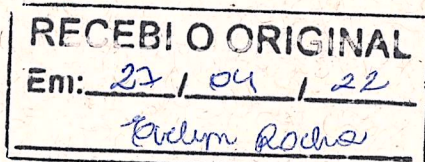 RECEBI O ORIGINAL
Em: 27 / 04 / 22
Evelyn Rocha